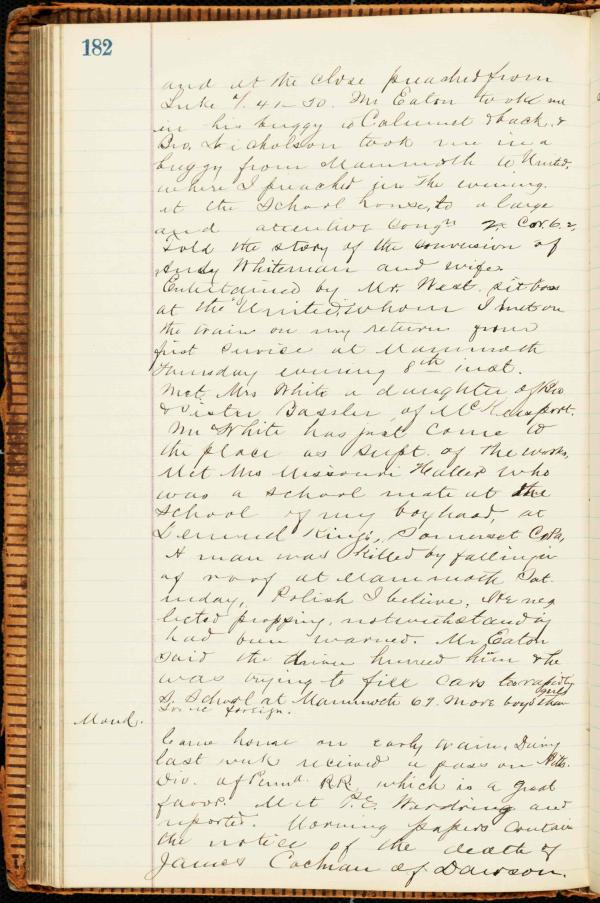 182
and at the close preached from
Luke 7.41-50. Mr Eaton took me
in his buggy to Calumet & back. &
Bro. Nicholson took me in a
buggy from Mammoth to United,
where I preached in the evening
at the School house, to a large
and attentive Congn 2 Cor. 6.2,
Told the story of the conversion of
Andy Whiteman and wife.
Entertained by Mr. West. pit boss
at the "United", whom I met on
the train on my return from
first service at Mammoth
Thursday evening 8th inst.
Met Mrs White a daughter of Bro
& Sister Bassler, of McKeesport.
Mr White has just come to
the place as supt. of the works.
Met Mrs Missouri Haller who
was a school mate at the
School of my boyhood, at
King's, Somerset Co Pa,
A man was killed by falling in
of roof at Mammoth Sat
urday, Polish I believe, He neg
lected propping, notwithstanding
had been warned. Mr Eaton
said the driver hurried him & he
was trying to fill cars too rapidly
S. School at Mammoth 67. More boys than girls
foreign.
Mond.
Came home on early train. During
last week received a pass on Pitts.
Div. of Penna. R.R., which is a great
favor. Met P.E. and
reported. Morning papers contain
the notice of the death of
James Cochran of Dawson.